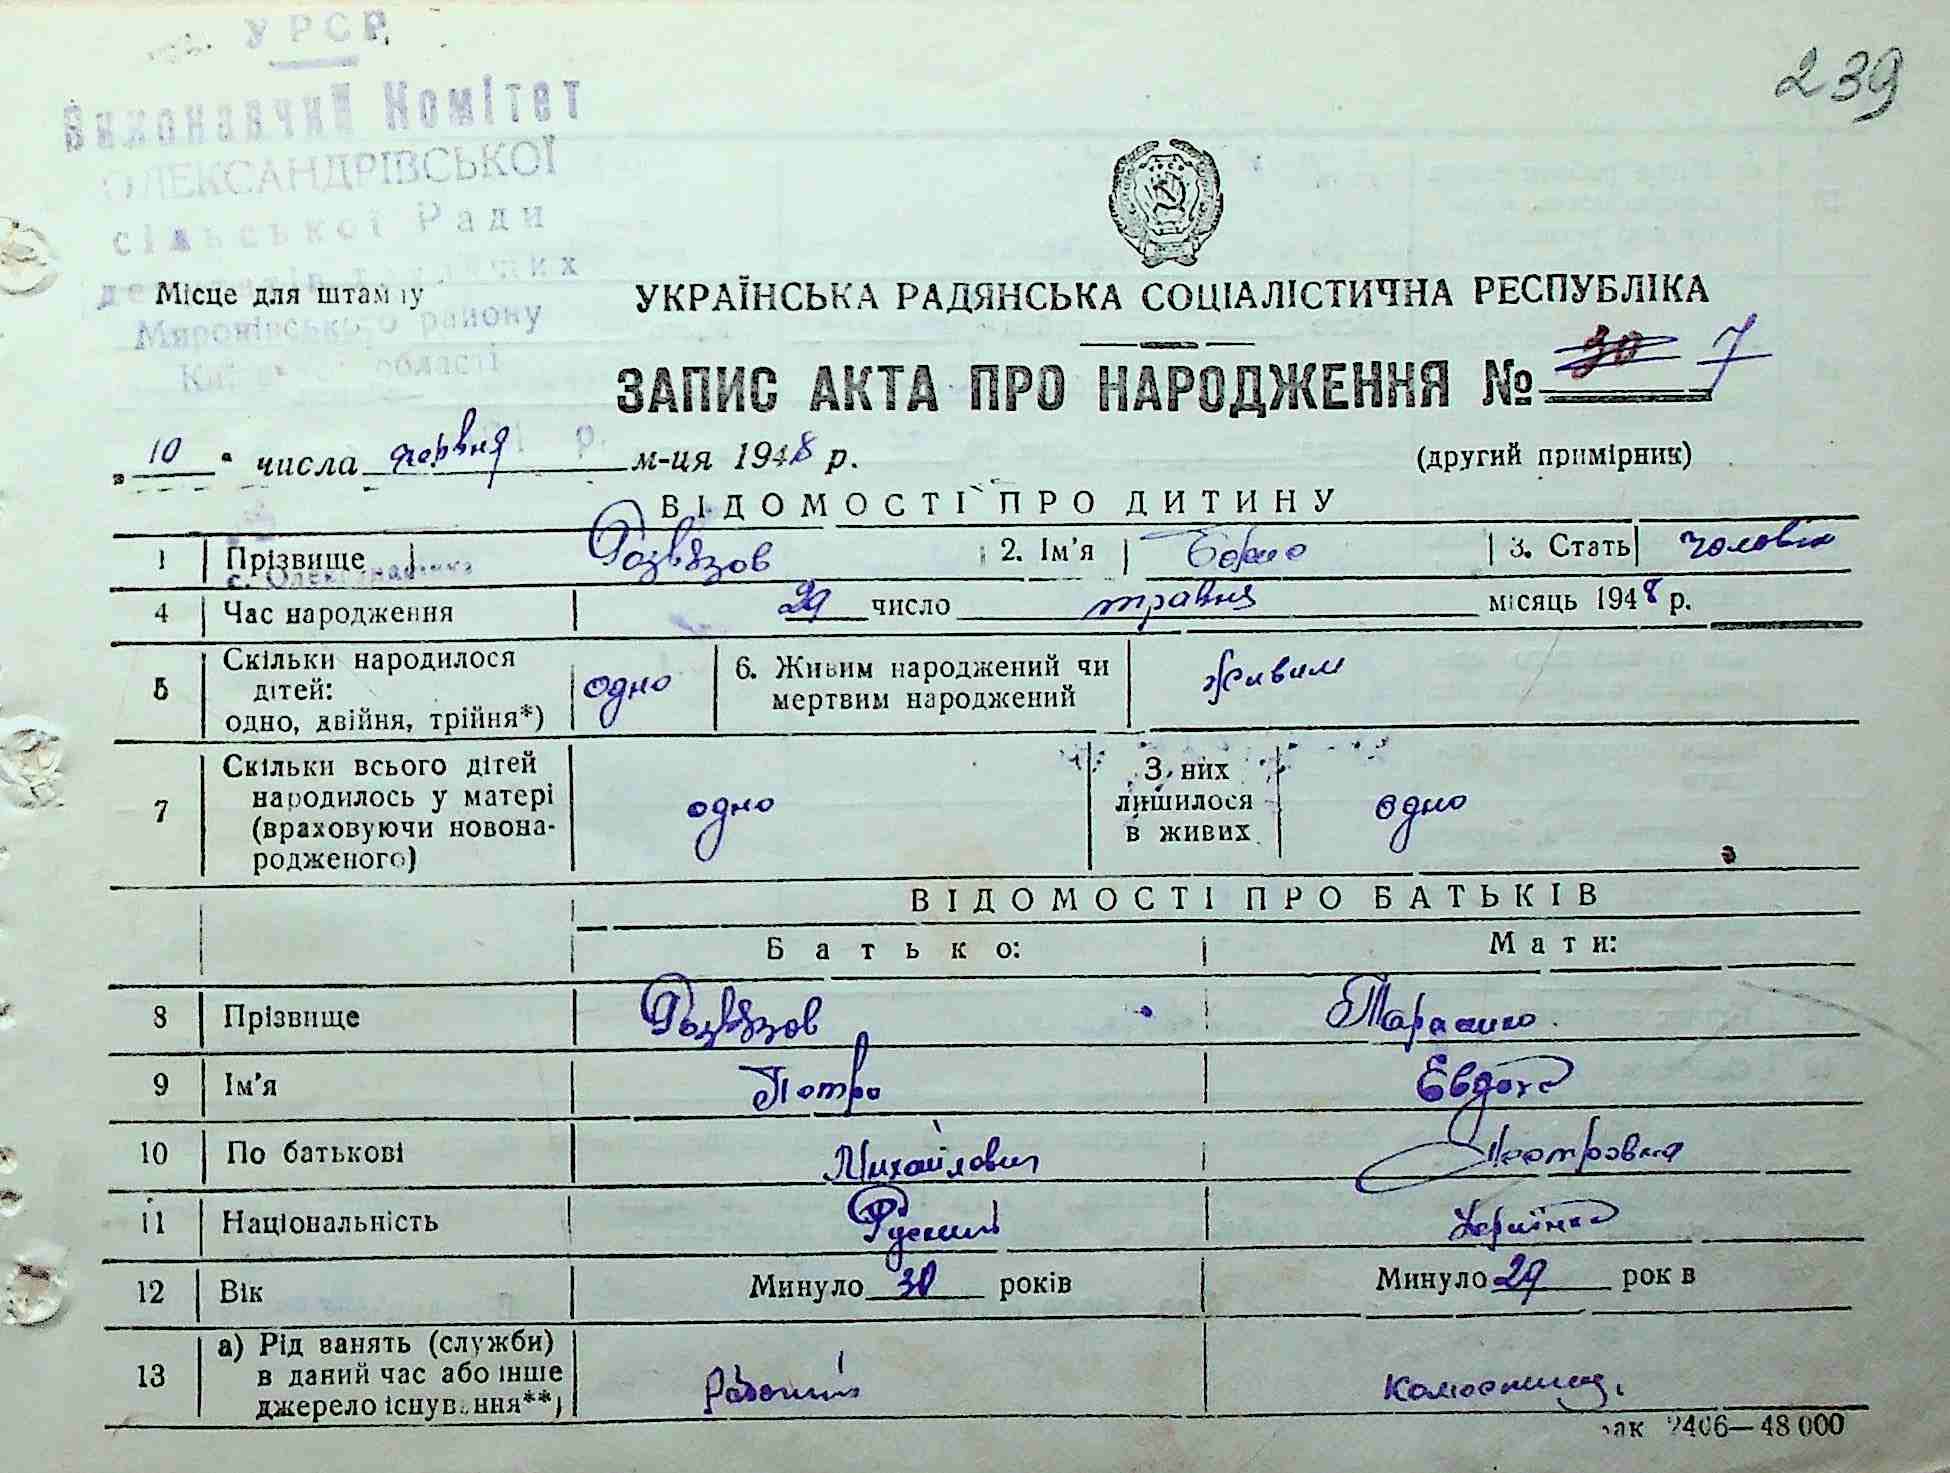 УРСР
239
Виконавчий Комітет
ОЛЕКСАНДРІВСЬКОЇ
сільської Ради
депутатів трудящих
Місце для штампу
Миронівського району
Київської області
УКРАЇНСЬКА РАДЯНСЬКА СОЦІАЛІСТИЧНА РЕСПУБЛІКА
ЗАПИС АКТА ПРО НАРОДЖЕННЯ № 30 7
„10“ числа червня м-ця 1948 р.
(другий примірник)
ВІДОМОСТІ ПРО ДИТИНУ
1 Прізвище Розвязов 2. Ім'я 3. Стать чоловік
4 Час народження 29 число травня місяць 1948 р.
5 Скільки народилося дітей: одно, двійня, трійня*) одно 6. Живим народжений чи мертвим народжений живим
7 Скільки всього дітей народилось у матері (враховуючи новонародженого) одно З них лишилося в живих одно
ВІДОМОСТІ ПРО БАТЬКІВ
Батько: Мати:
8 Прізвище Розвязов
9 Ім'я Петро Евдоха
10 По батькові Михайлович Петровна
11 Національність Руский Українка
12 Вік Минуло 30 років Минуло 29 рок в
13 а) Рід занять (служби) в даний час або інше джерело існування**) Рабочий Колгоспниця
зак 2406—48 000